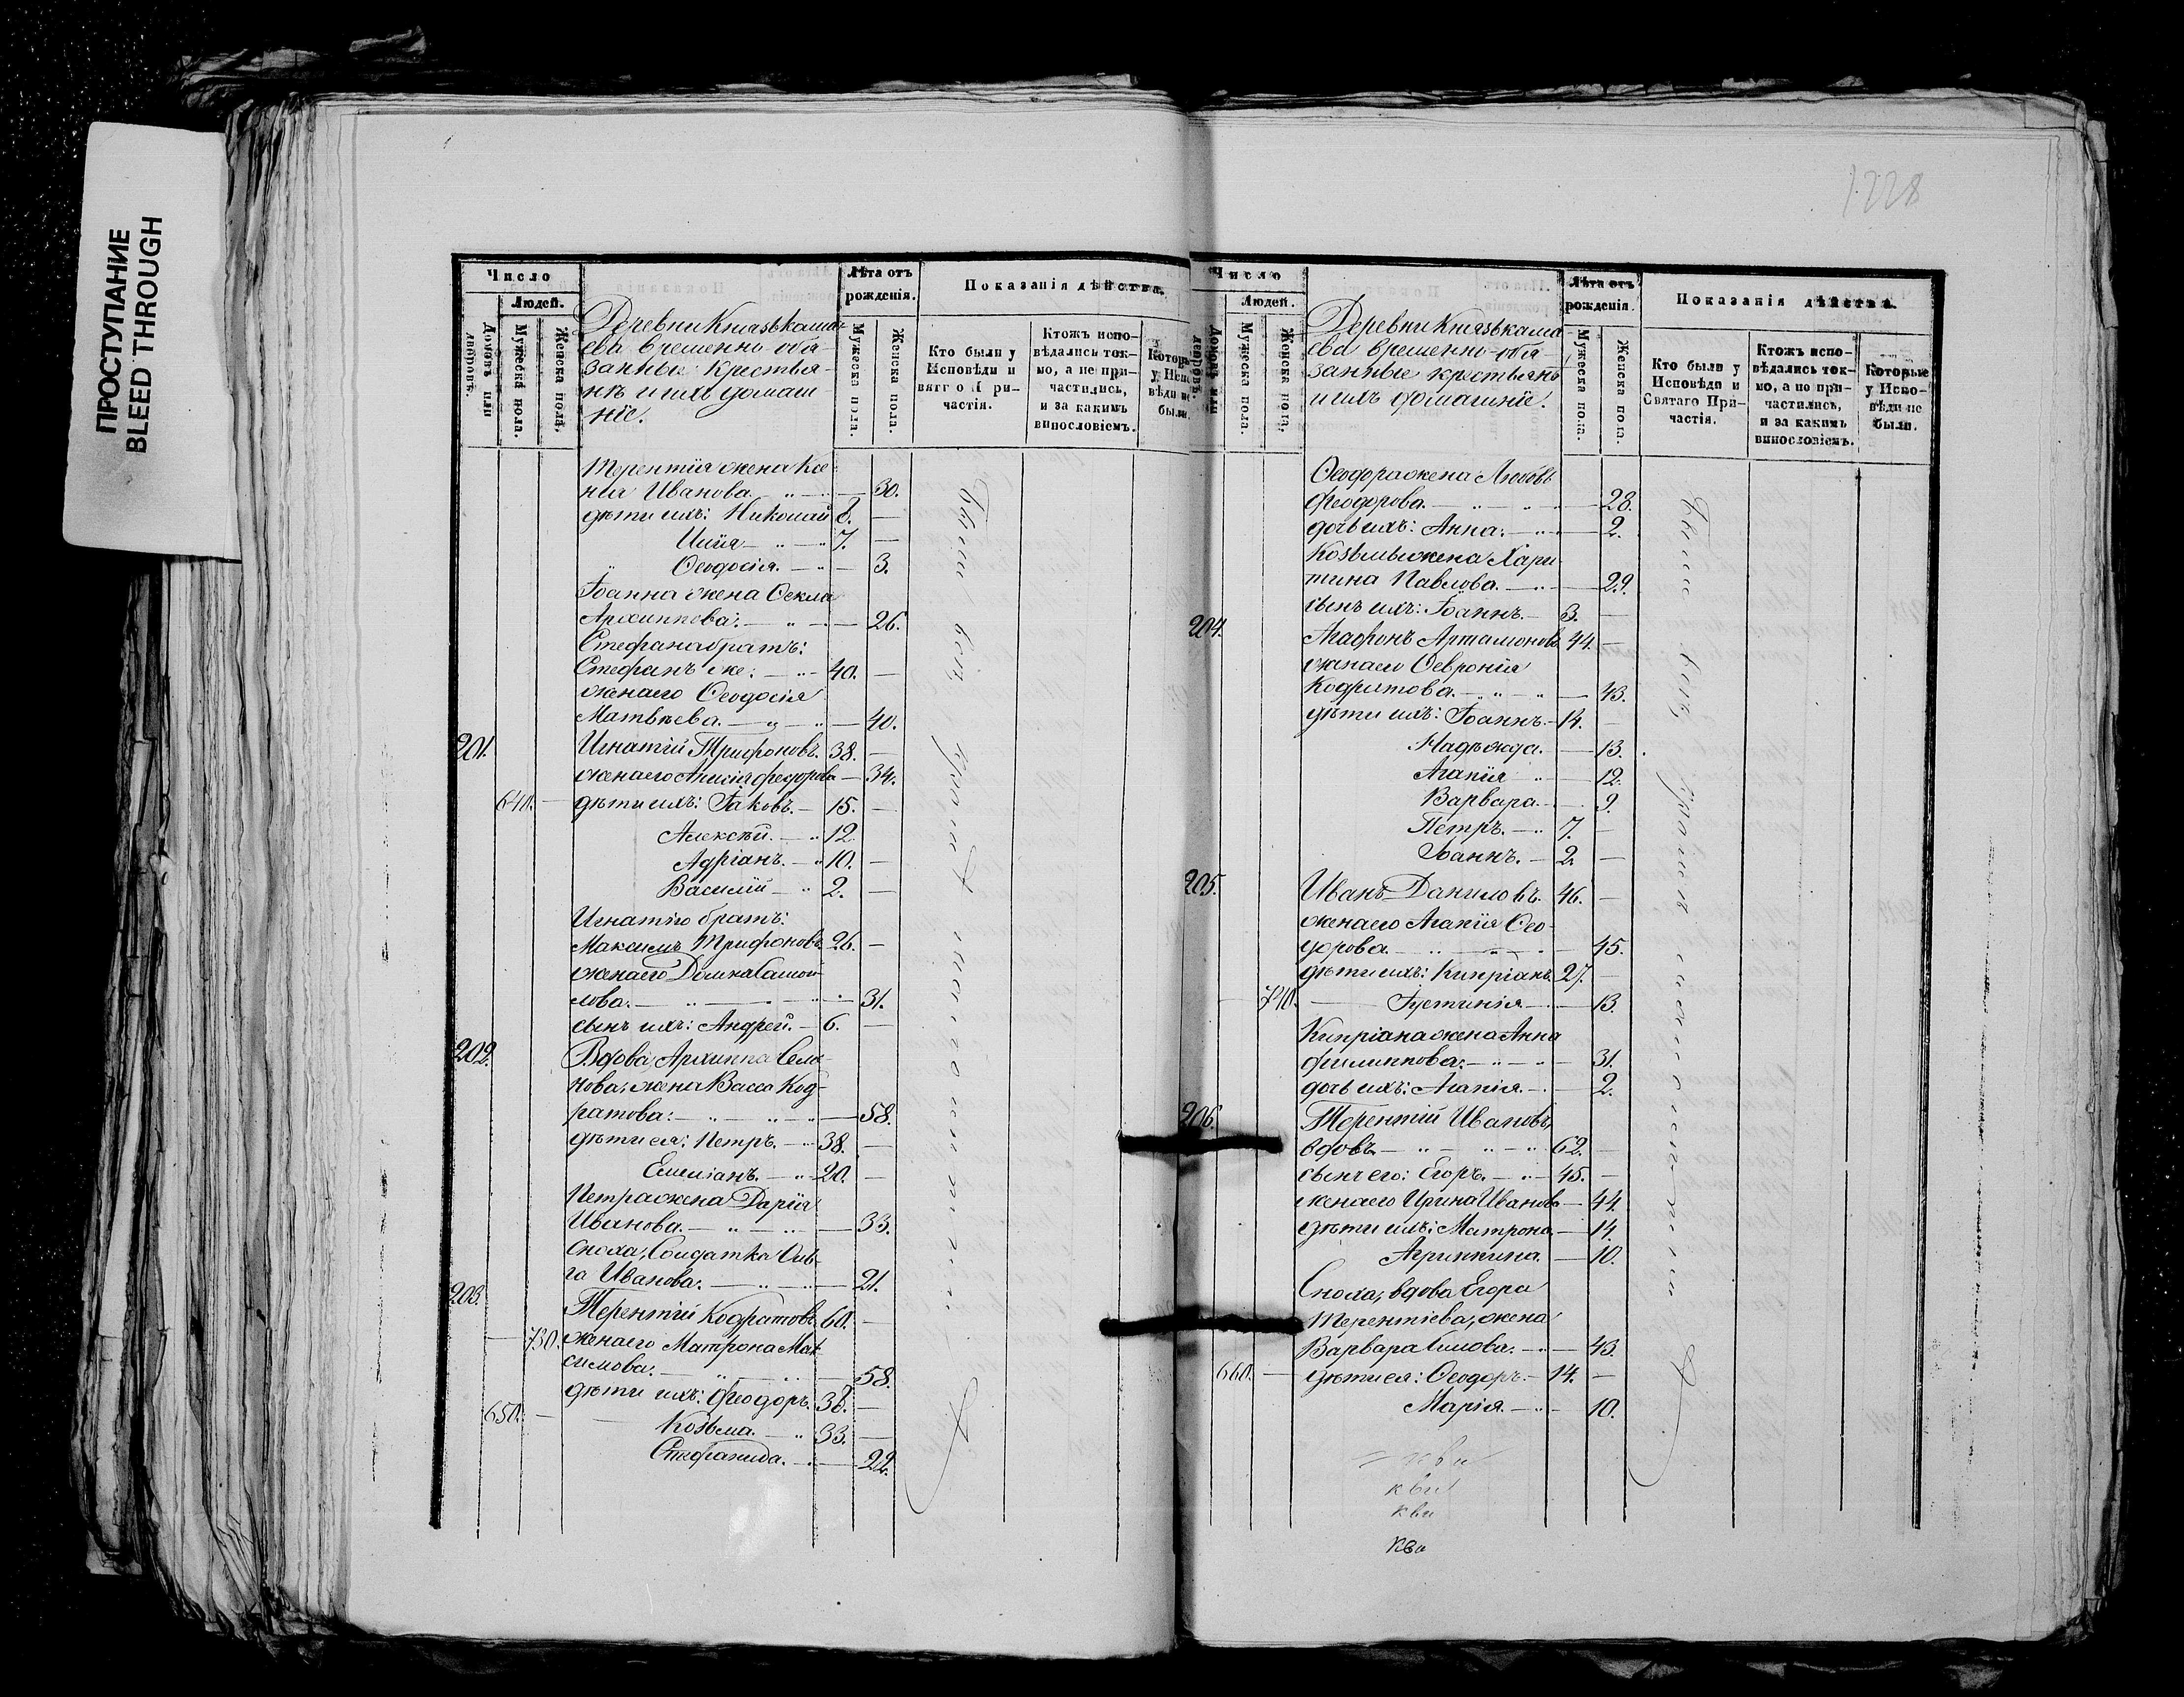 ПРОСТУПАНИЕ
BLEED THROUGH
1228
Число
Людей.
Домовъ или дворовъ.
Мужеска пола.
Женска пола.
Деревни Князькама-
ева временно-обя-
занные крестья-
нѣ и ихъ домаш-
ніе.
Лѣта отъ рожденія.
Мужеска пола.
Женска пола.
Показанія дѣйства.
Кто были у Исповѣди и Святаго Причастія.
Ктожъ испо-
вѣдались ток-
мо, а не при-
частились,
и за какимъ
винословіемъ.
Которые у Исповѣди не были.
Терентія жена Ксе-
нія Иванова. 30.
дѣти ихъ: Николай 8.
Илія 7.
Ѳеодосія. 3.
Іоанна жена Ѳекла
Архиппова. 26.
Стефана братъ:
Стефанъ же. 40.
жена его Ѳеодосія
Матвѣева. 40.
201. Игнатій Трифоновъ. 38.
жена его Анисія Федорова 34.
640. дѣти ихъ: Іаковъ. 15.
Алексѣй. 12.
Адріанъ. 10.
Василій 2.
Игнатію братъ:
Максимъ Трифоновъ 26.
жена его Домна Самой-
лова. 31.
сынъ ихъ: Андрей. 6.
202. Вдова, Архиппа Семе-
нова, жена Васса Код-
ратова: 58.
дѣти ея: Петръ. 38.
Емиліанъ. 20.
Петра жена Дарія
Иванова. 33.
Сноха, Солдатка Оль-
га Иванова. 21.
203. Терентій Кодратовъ 60.
730. жена его Матрона Мак-
симова. 58.
дѣти ихъ: Феодоръ. 38.
650. Козьма. 33.
Стефанида. 22.
Были
всѣ
Число
Людей.
Домовъ или дворовъ.
Мужеска пола.
Женска пола.
Деревни Князькама-
ева временно-обя-
занные крестьянѣ
и ихъ домашніе.
Лѣта отъ рожденія.
Мужеска пола.
Женска пола.
Показанія дѣйства.
Кто были у
Исповѣди и
Святаго При-
частія.
Ктожъ испо-
вѣдались ток-
мо, а не при-
частились,
и за какимъ
винословіемъ.
Которые
у Испо-
вѣди не
были.
Ѳеодора жена Любовь
Феодорова. 28.
дочь ихъ: Анна. 2.
Козьмы жена Хари-
тина Павлова. 29.
сынъ ихъ: Іоаннъ. 3.
204. Агафонъ Артамоновъ 44.
жена его Ѳевронія
Кодратова. 43.
дѣти ихъ: Іоаннъ. 14.
Надежда. 13.
Агапія 12.
Варвара. 9.
Петръ. 7.
Іоаннъ. 2.
205. Иванъ Даниловъ. 46.
жена его Агапія Ѳео-
дорова. 45.
дѣти ихъ: Кипріанъ. 27.
740. Іустинія. 13.
Кипріана жена Анна
Филиппова. 31.
дочь ихъ: Агапія. 2.
206. Терентій Ивановъ
вдовъ 62.
сынъ его: Егоръ. 45.
жена его Ирина Иванова 44.
дѣти ихъ: Матрона. 14.
Агриппина. 10.
Сноха, вдова Егора
Терентіева, жена
Варвара 43.
660. дѣти ея: Ѳеодоръ. 14.
Марія. 10.
Были
всѣ
кви
кви
кви